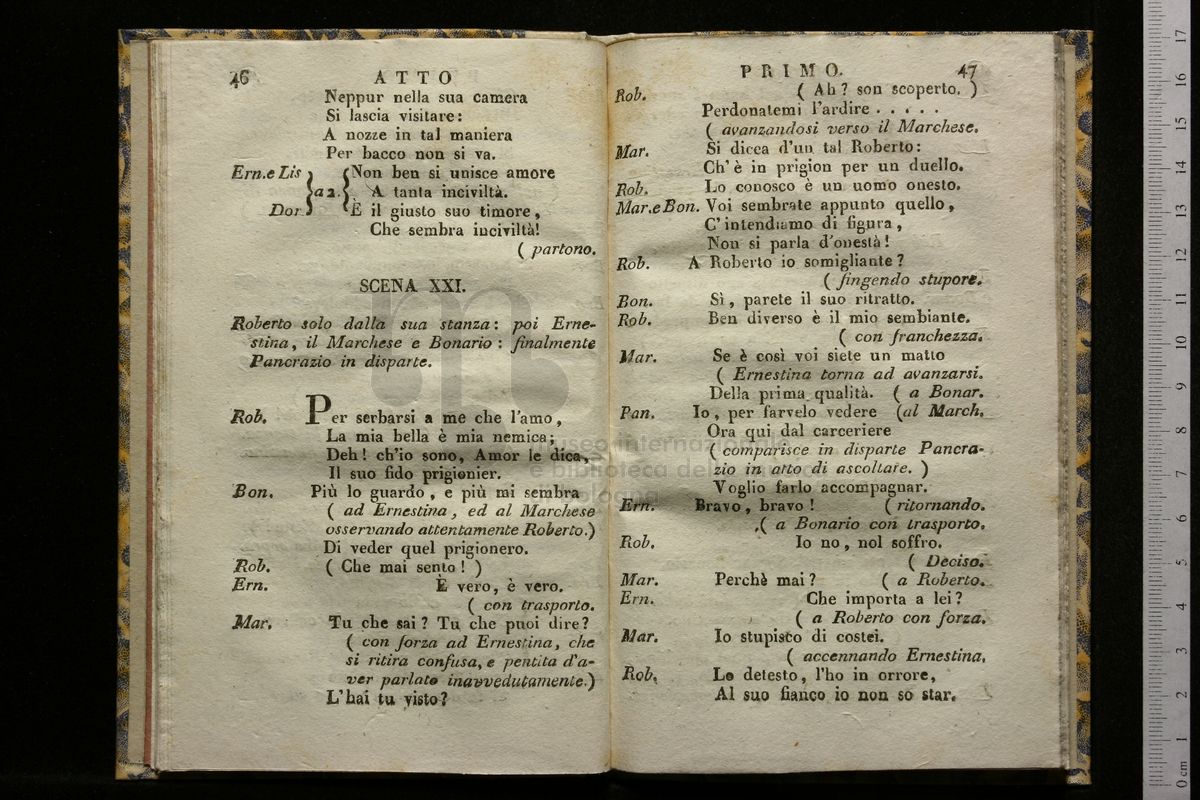 46 ATTO
Neppur nella sua camera
Si lascia visitare:
A nozze in tal maniera
Per bacco non si va.
Ern.e Lis Non ben si unisce amore
a 2. A tanta inciviltà.
Dor È il giusto suo timore,
Che sembra inciviltà!
( partono.
SCENA XXI.
Roberto solo dalla sua stanza: poi Erne-
stina, il Marchese e Bonario: finalmente
Pancrazio in disparte.
Rob. Per serbarsi a me che l'amo,
La mia bella è mia nemica;
Deh! ch'io sono, Amor le dica,
Il suo fido prigionier.
Bon. Più lo guardo, e più mi sembra
( ad Ernestina, ed al Marchese
osservando attentamente Roberto.)
Di veder quel prigionero.
Rob. ( Che mai sento! )
Ern. È vero, è vero.
( con trasporto.
Mar. Tu che sai? Tu che puoi dire?
( con forza ad Ernestina, che
si ritira confusa, e pentita d'a-
ver parlato inavvedutamente.)
L'hai tu visto?
PRIMO. 47
Rob. ( Ah? son scoperto. )
Perdonatemi l'ardire . . . . .
( avanzandosi verso il Marchese.
Mar. Si dicea d'un tal Roberto:
Ch'è in prigion per un duello.
Rob. Lo conosco è un uomo onesto.
Mar.e Bon. Voi sembrate appunto quello,
C'intendiamo di figura,
Non si parla d'onestà!
Rob. A Roberto io somigliante?
( fingendo stupore.
Bon. Sì, parete il suo ritratto.
Rob. Ben diverso è il mio sembiante.
( con franchezza.
Mar. Se è così voi siete un matto
( Ernestina torna ad avanzarsi.
Della prima qualità. ( a Bonar.
Pan. Io, per farvelo vedere (al March.
Ora qui dal carceriere
( comparisce in disparte Pancra-
zio in atto di ascoltare. )
Voglio farlo accompagnar.
Ern. Bravo, bravo! ( ritornando.
( a Bonario con trasporto.
Rob. Io no, nol soffro.
( Deciso.
Mar. Perchè mai? ( a Roberto.
Ern. Che importa a lei?
( a Roberto con forza.
Mar. Io stupisco di costei.
( accennando Ernestina.
Rob. Lo detesto, l'ho in orrore,
Al suo fianco io non so star.